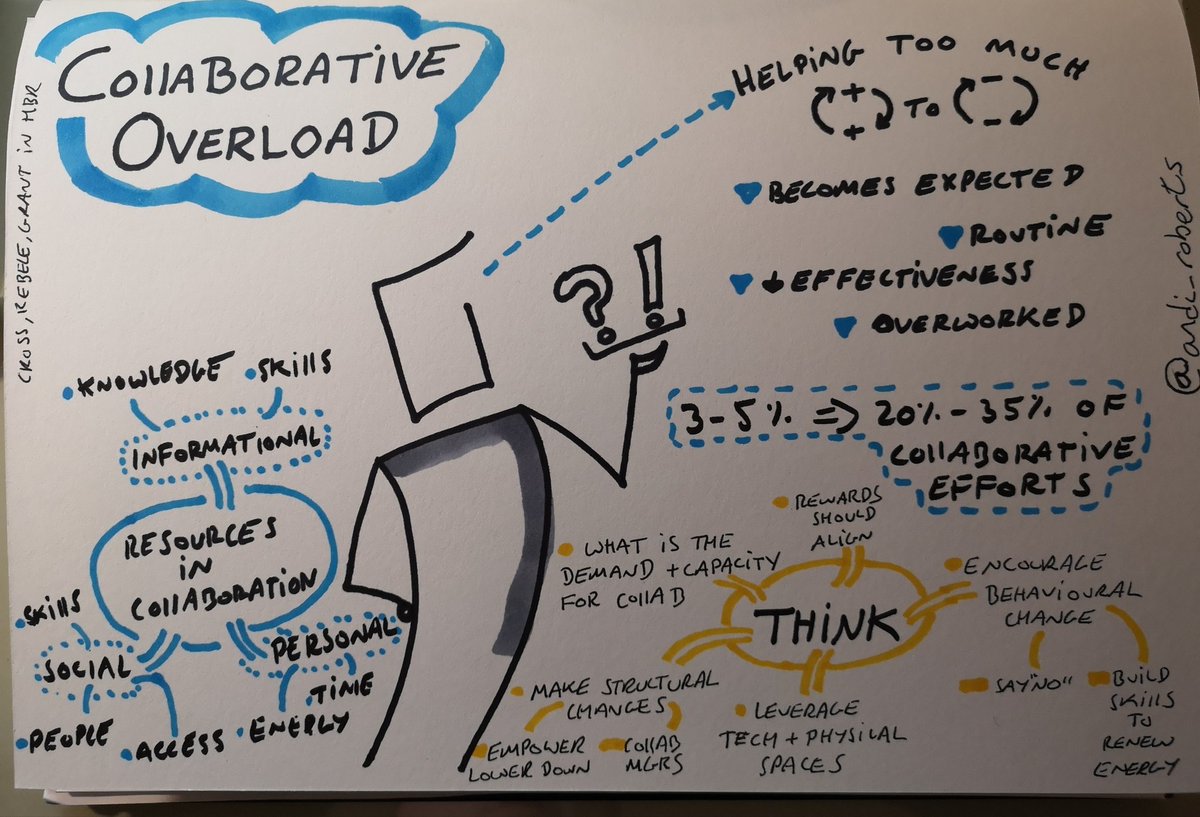 COllABORATIVE
OVERLOAD
CROSS, REBELE, GRANT iN HBR
HELPING TOO MUCH
+ + TO - -
BECOMES EXPECTED
ROUTINE
↓ EFFECTiVENESS
OVERWORKED
@andi_roberts
? !
3-5% => 20% - 35% OF
COllABORATIVE
EFFORTS
KNOWLEDGE
SKills
iNFORMATiONAL
RESOURCES
iN
COllABORATiON
SKills
SOCIAL
PEOPLE
ACCESS
PERSONAL
TiME
ENERGY
THiNK
WHAT iS THE
DEMAND + CAPACiTY
FOR COllAB
REWARDS
SHOULD
ALiGN
ENCOURAGE
BEHAViOURAL
CHANGE
SAY "NO"
BUiLD
SKillS
TO
RENEW
ENERGY
MAKE STRUCTURAL
CHANGES
EMPOWER
LOWER DOWN
COllAB
MGRS
LEVERAGE
TECH + PHYSiCAL
SPACES